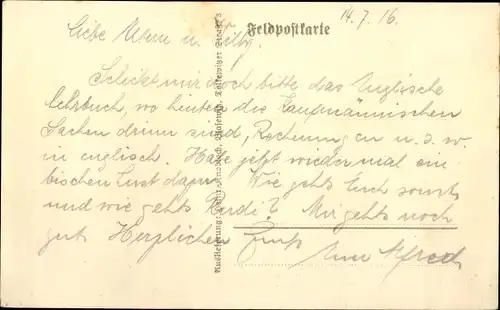 14.7.16.
Feldpostkarte
Liebe Eltern u.
Schickt mir doch bitte das Englische
Lehrbuch, wo hinten die Kaufmännischen
Sachen drinn sind, Rechnungen u. s. w.
in englisch. Habe jetzt wieder mal ein
bischen Lust dazu. Wie gehts Euch sonst
und wie gehts Ferdi? Mir gehts noch
gut Herzlichen Gruß
Euer Alfred